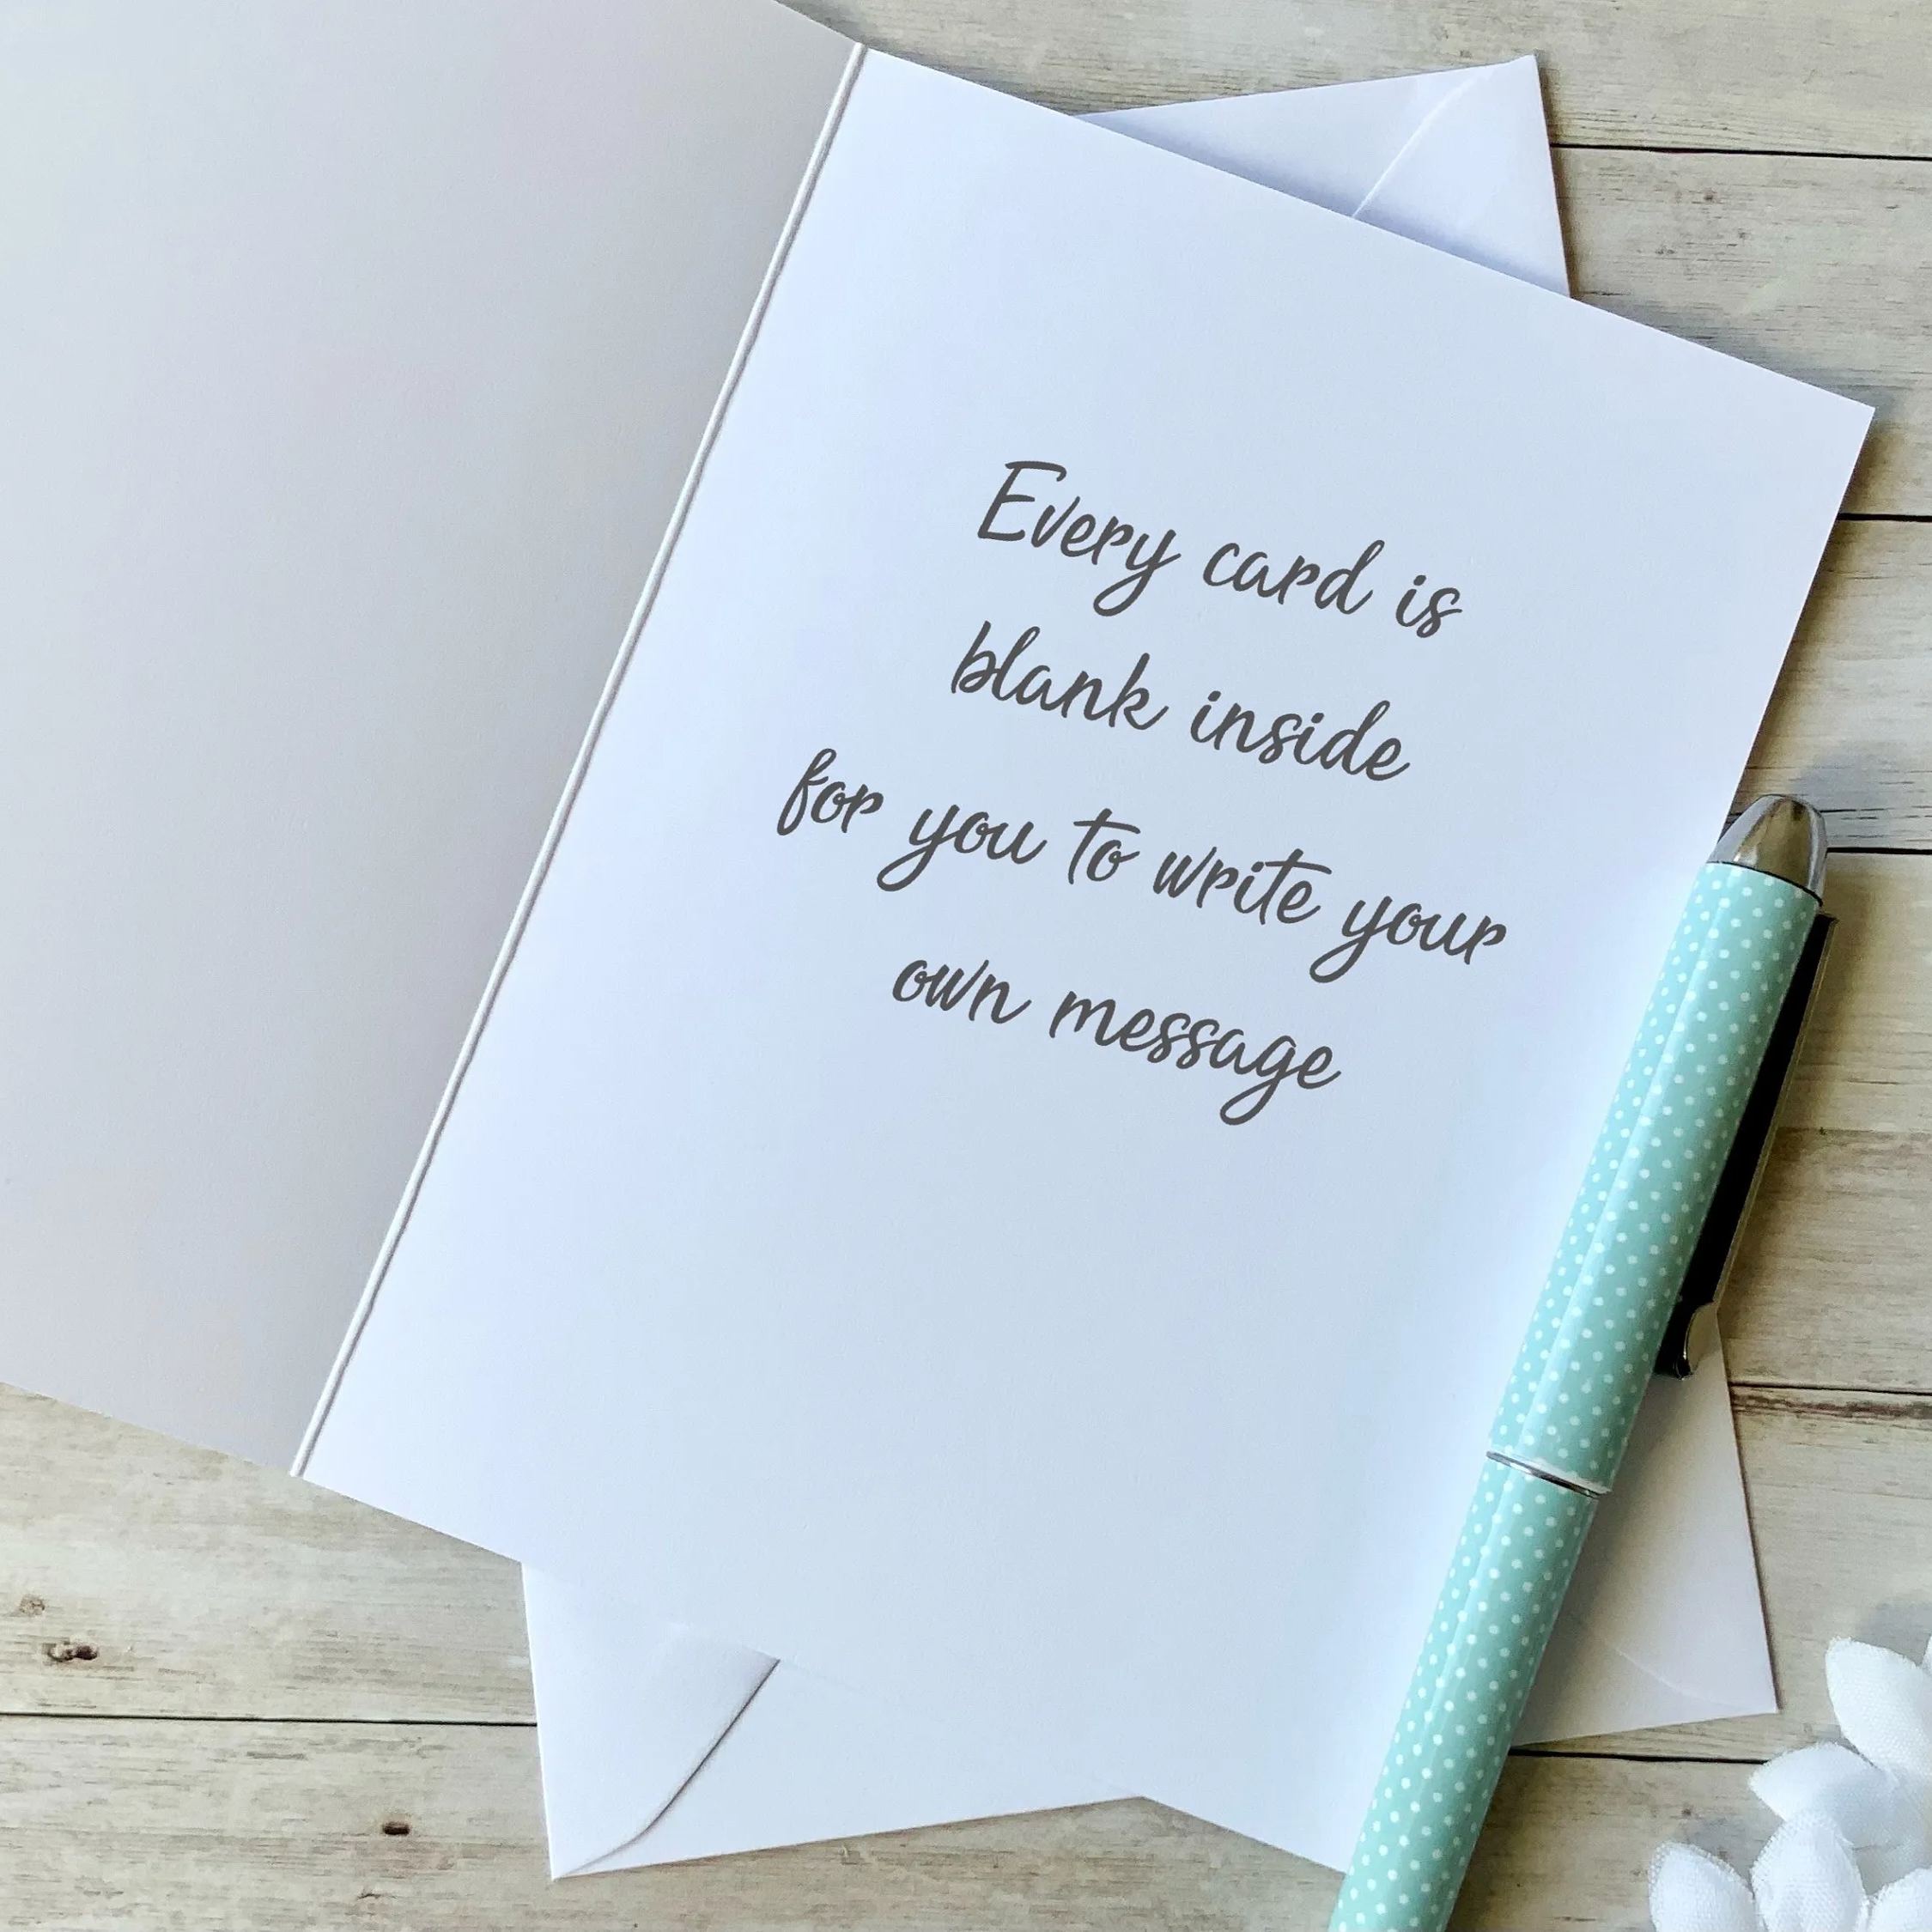 Every card is
blank inside
for you to write your
own message